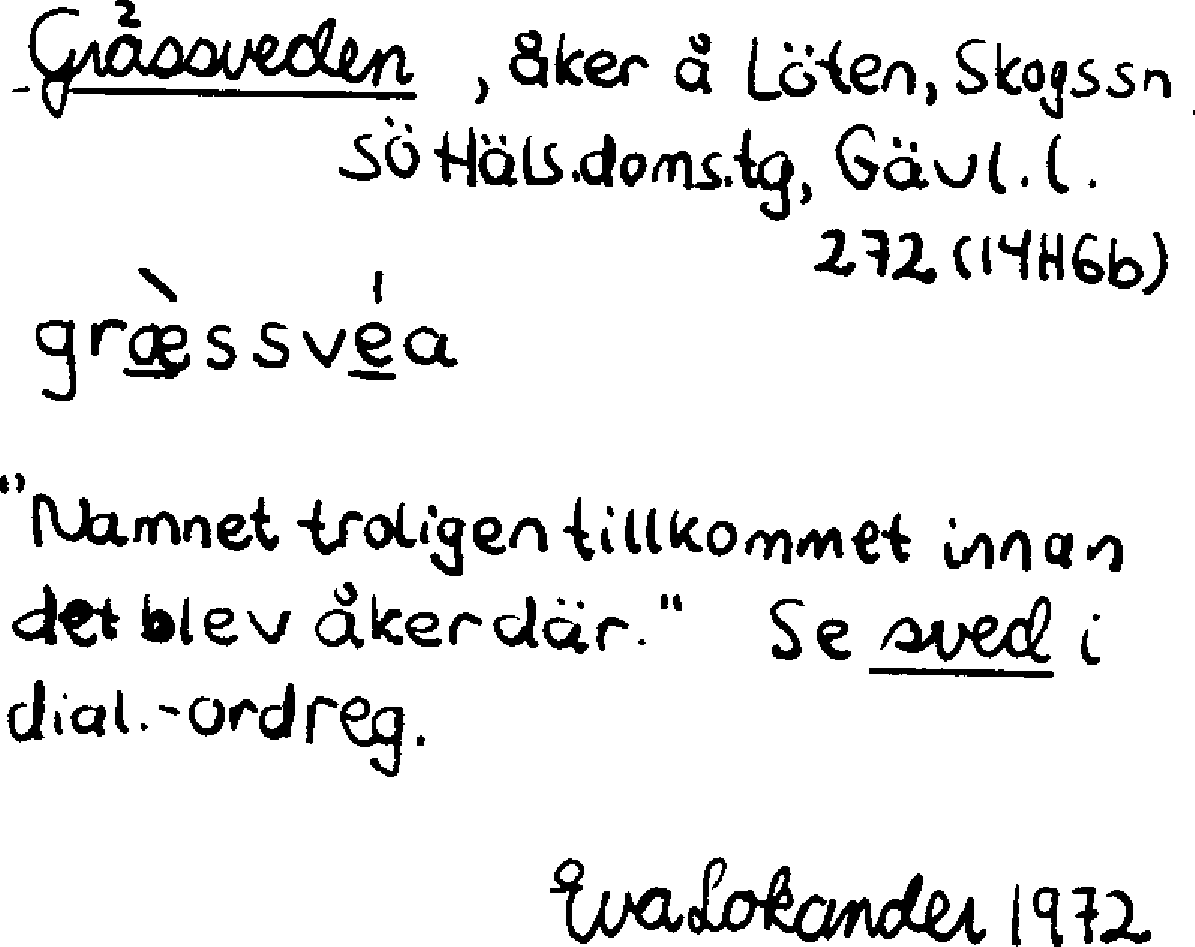 Grässveden, åker å Löten, Skogs sn
SÖ Häls.doms.tg, Gävl.l.
272 (14H6b)
græ̀ssvéa
"Namnet troligen tillkommet innan
det blev åker där." Se sved i
dial.-ordreg.
Eva Lokander 1972